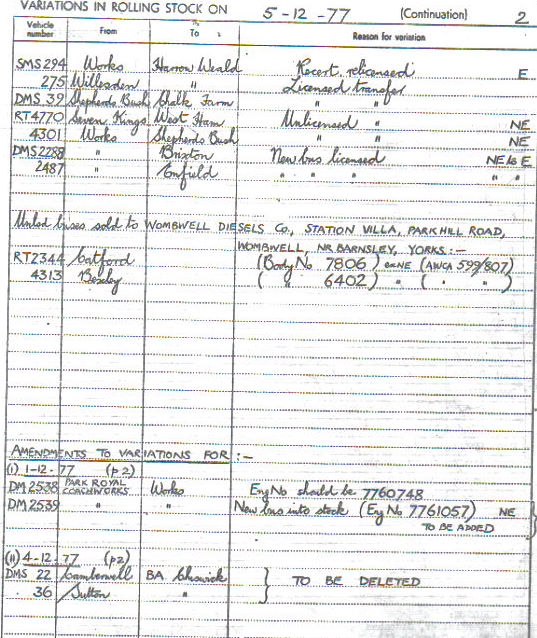 VARIATIONS IN ROLLING STOCK ON 5-12-77 (Continuation) 2
Vehicle number From To Reason for variation
SMS294 Works Harrow Weald Recert. relicensed E
275 Willesden " Licensed transfer
DMS 39 Shepherds Bush Chalk Farm " "
RT4770 Seven Kings West Ham Unlicensed " NE
4301 Works Shepherds Bush " " NE
DMS2288 " Brixton New bus licensed NE to E
2487 " Enfield " " " " "
Unlcd buses sold to WOMBWELL DIESELS Co., STATION VILLA, PARKHILL ROAD,
WOMBWELL, NR. BARNSLEY, YORKS :-
RT2344 Catford (Body No 7806) ex NE (AWCA 599/807)
4313 Bexley ( " 6402) " ( " " )
AMENDMENTS TO VARIATIONS FOR :-
(i) 1-12-77 (p2)
DM2538 PARK ROYAL COACHWORKS Works Eng No should be 7760748
DM2539 " " New bus into stock (Eng No 7761057) NE
TO BE ADDED
(ii) 4-12-77 (p2)
DMS 22 Camberwell BA Chiswick } TO BE DELETED
36 Sutton "